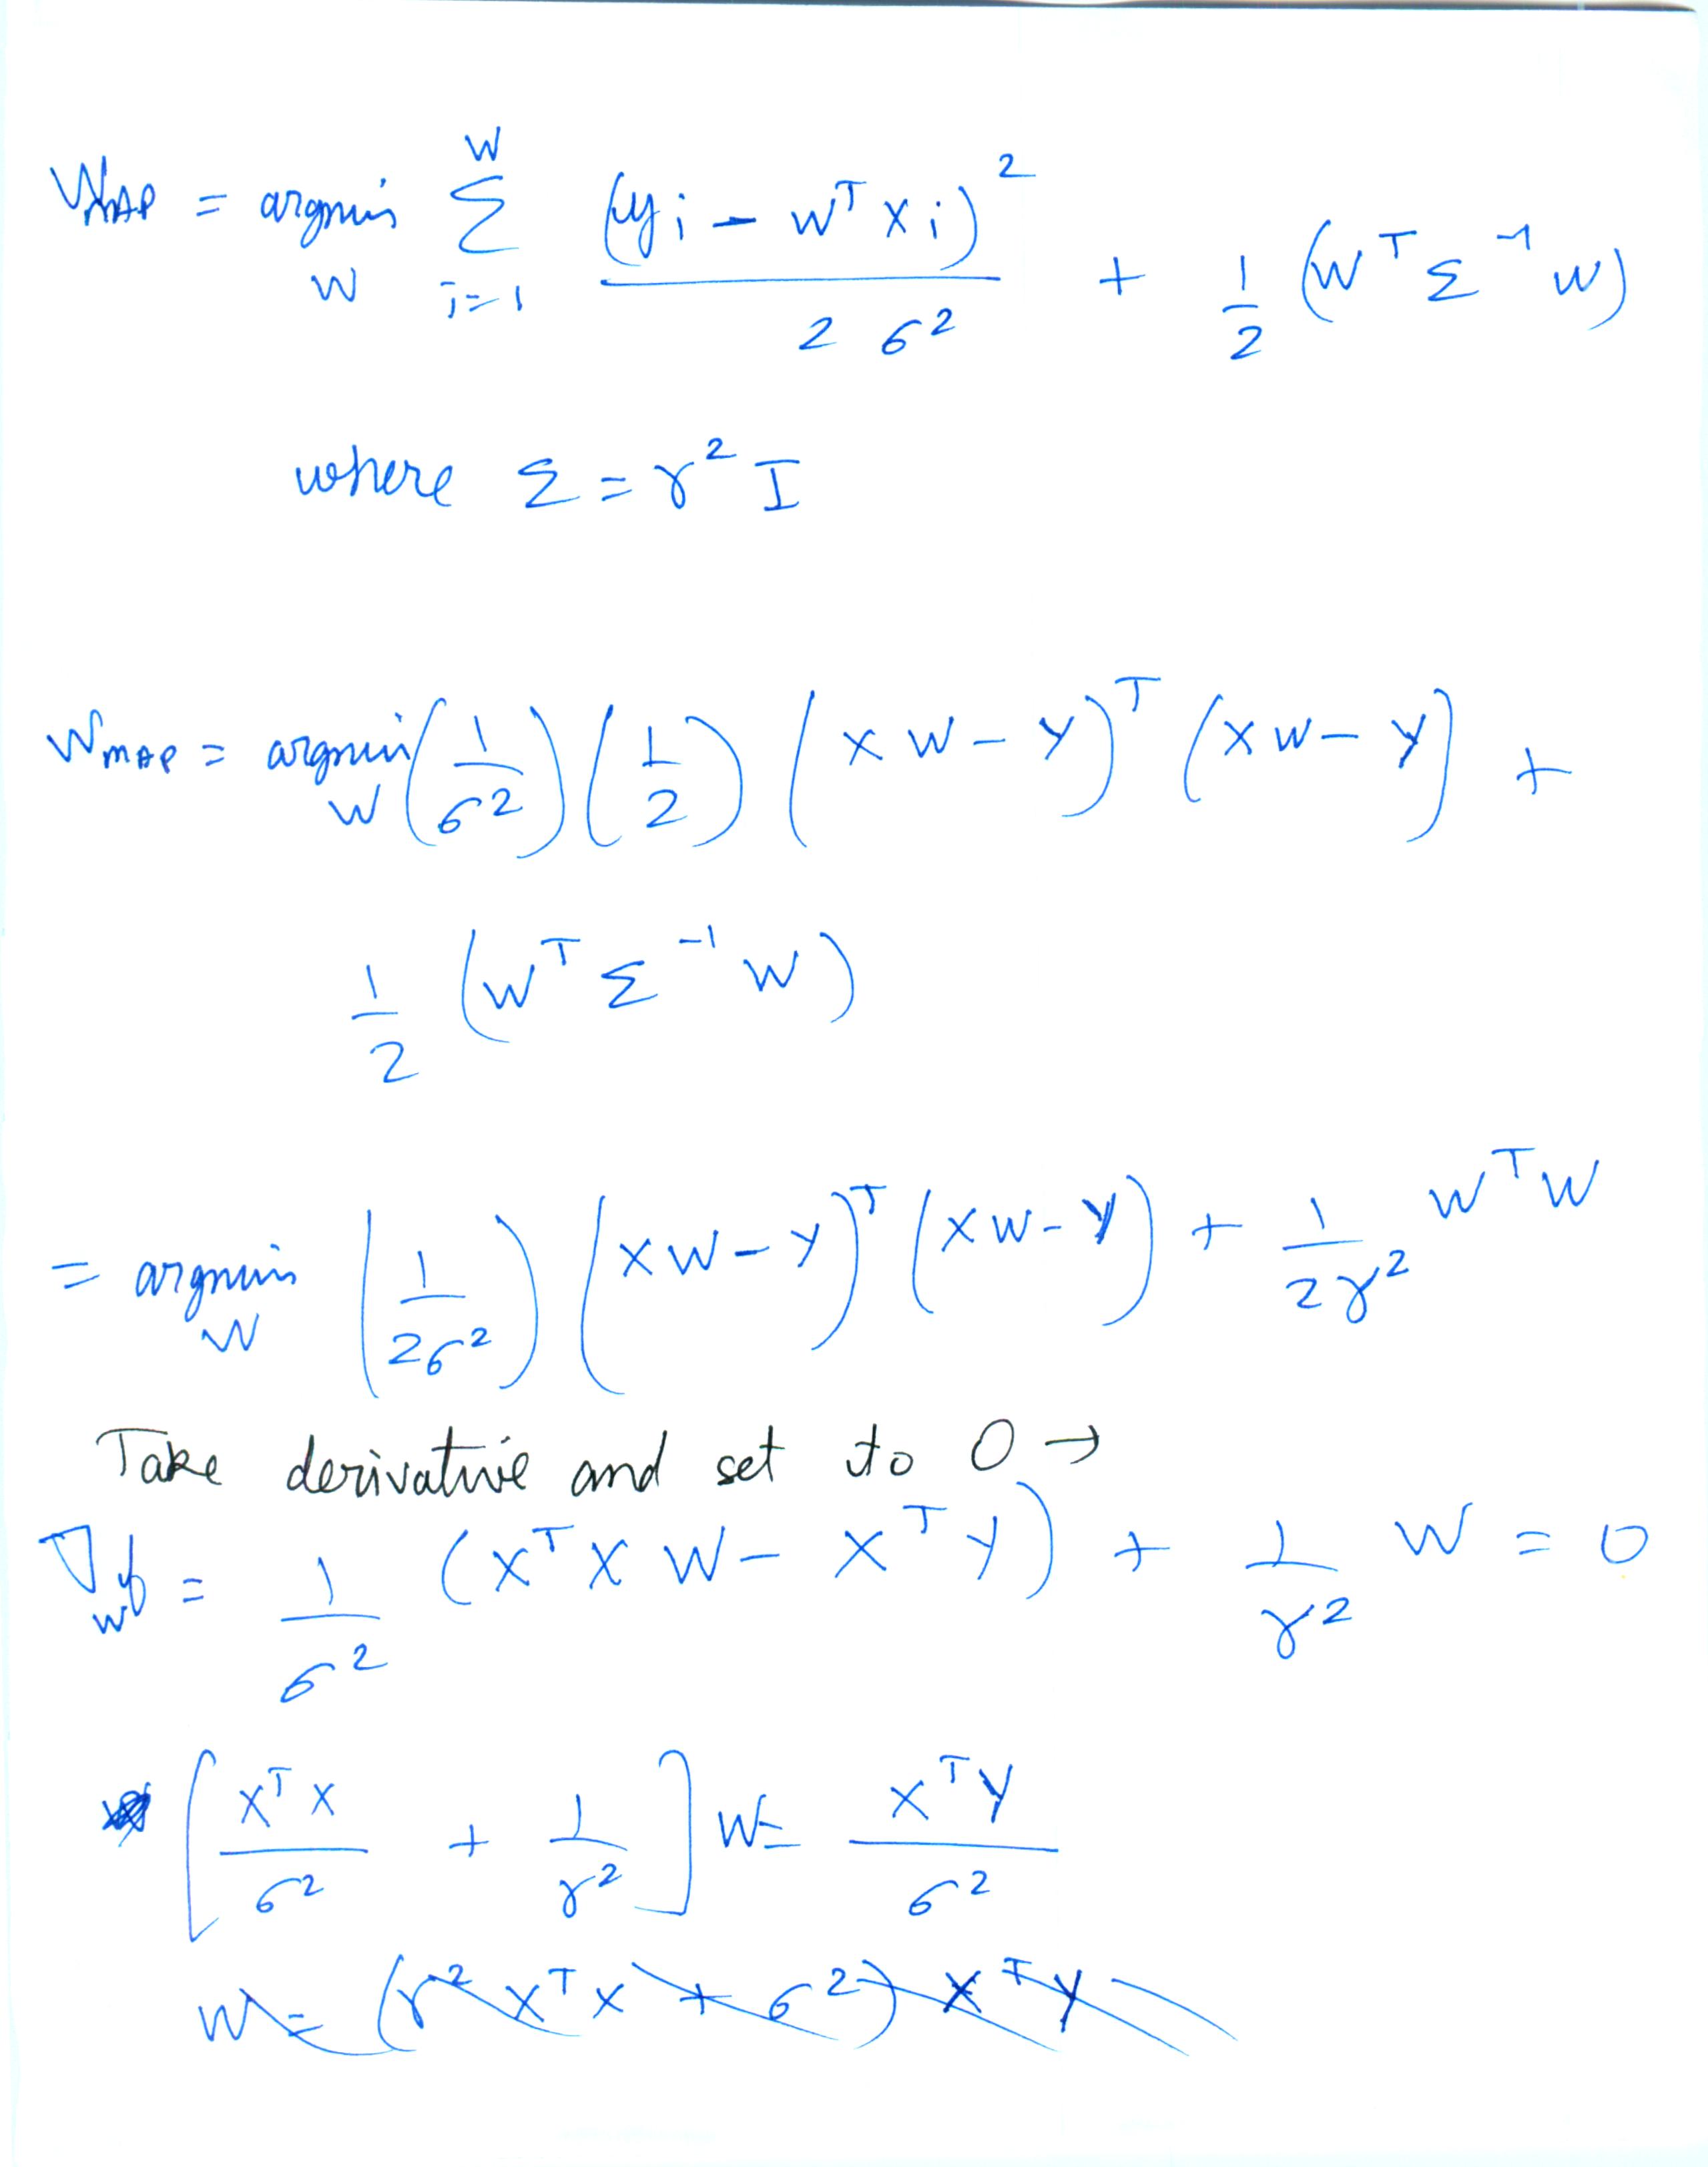 W_MAP = argmin_W Σ_{i=1}^{W} (y_i - w^T x_i)^2 / 2σ^2 + 1/2 (W^T Σ^-1 W)
where Σ = γ^2 I
W_MAP = argmin_W (1/σ^2) (1/2) (XW - Y)^T (XW - Y) +
1/2 (W^T Σ^-1 W)
= argmin_W (1/2σ^2) (XW - Y)^T (XW - Y) + 1/2γ^2 W^T W
Take derivative and set to 0 →
∇_w f = 1/σ^2 (X^T X W - X^T Y) + 1/γ^2 W = 0
[X^T X / σ^2 + 1/γ^2] W = X^T Y / σ^2
W = (γ^2 X^T X + σ^2) X^T Y